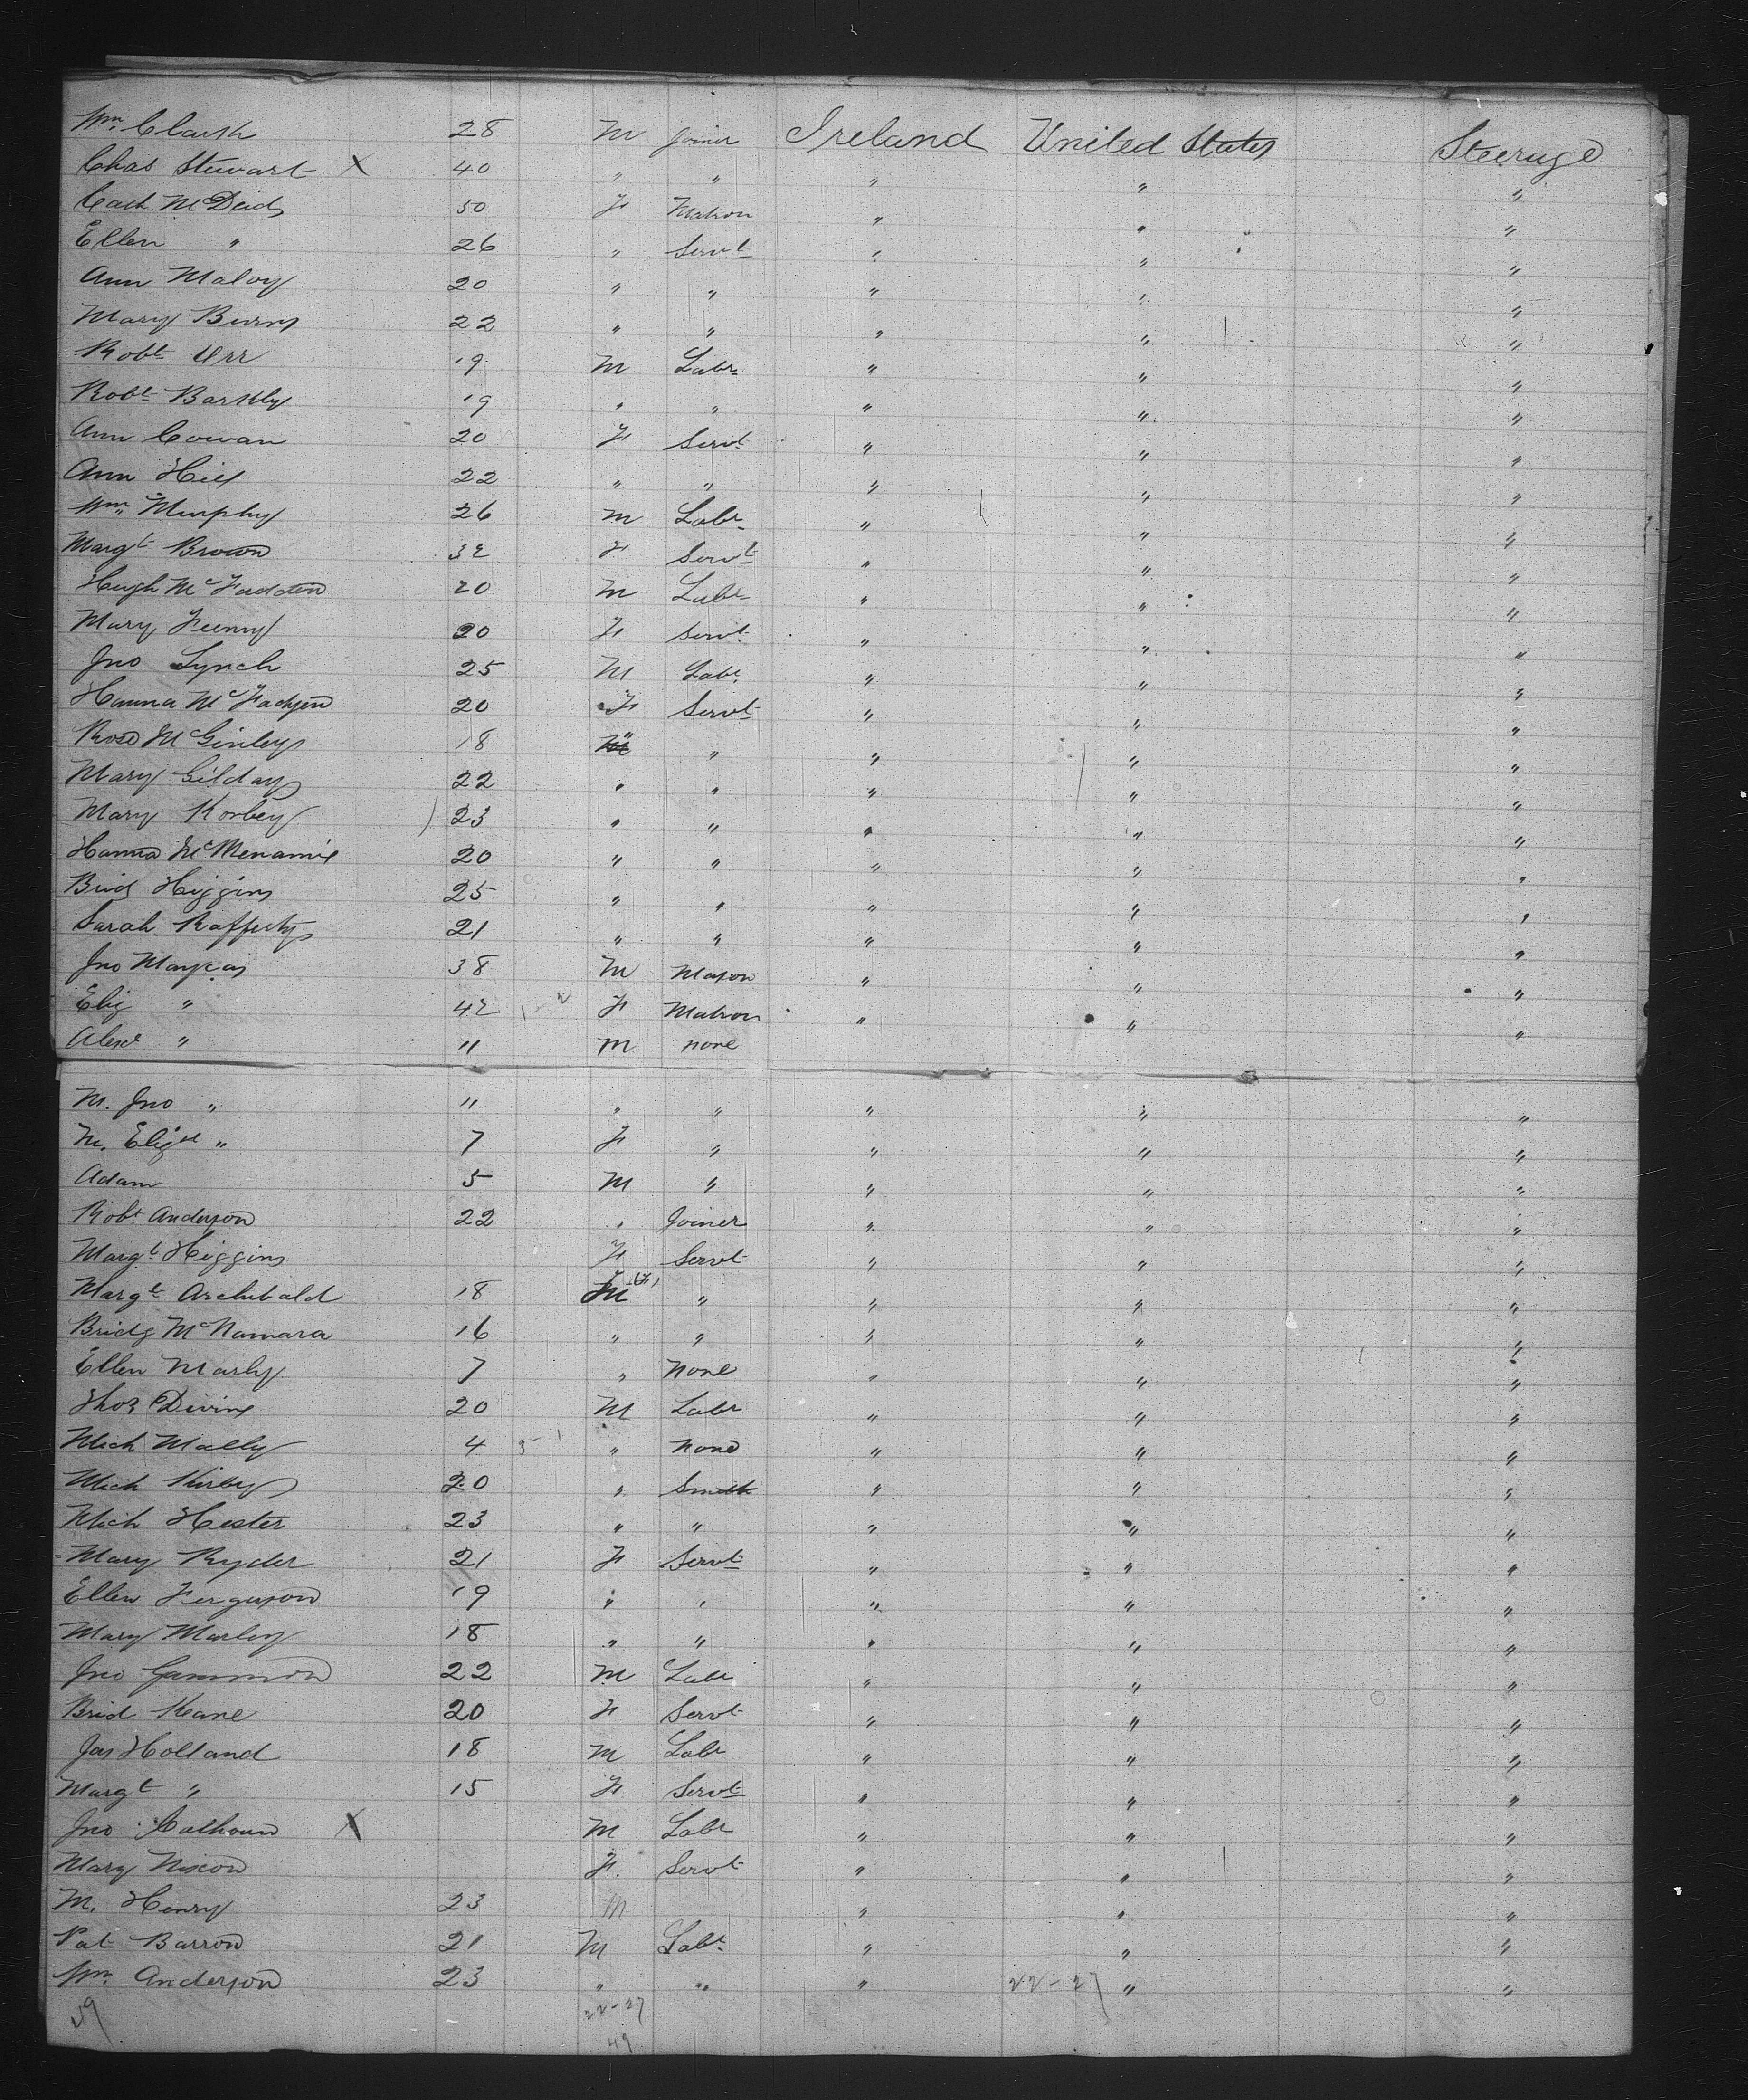 Wm Clark 28 M Joiner Ireland United States Steerage
Chas Stewart X 40 " " " " "
Cath McDeid 50 F Matron " " "
Ellen " 26 " Servt " " "
Ann Maloy 20 " " " " "
Mary Burns 22 " " " " "
Robt Orr 19 M Labr " " "
Robt Barkly 19 " " " " "
Ann Cowan 20 F Servt " " "
Ann Hill 22 " " " " "
Wm Murphy 26 M Labr " " "
Margt Brown 32 F Servt " " "
Hugh McFadden 20 M Labr " " "
Mary Feeny 20 F Servt " " "
Jno Lynch 25 M Labr " " "
Hanna McFadyen 20 F Servt " " "
Rose McGinley 18 " " " " "
Mary Gilday 22 " " " " "
Mary Korbey 23 " " " " "
Hanna McMenamie 20 " " " " "
Brid Higgins 25 " " " " "
Sarah Rafferty 21 " " " " "
Jno 38 M Mason " " "
Eliz " 42 F Matron " " "
Alexr " 11 M none
M. Jno " 11 " " " " "
M. Elizth " 7 F " " " "
Adam 5 M " " " "
Robt Anderson 22 " Joiner " " "
Margt Higgins F Servt " " "
Margt Archibald 18 M (F) " " " "
Bridg McNamara 16 " " " " "
Ellen Marly 7 " None " " "
Thos Divine 20 M Labr " " "
Mich Mally 4 " None " " "
Mich Kirby 20 " Smith " " "
Mich Hester 23 " " " " "
Mary Ryder 21 F Servt " " "
Ellen Ferguson 19 " " " " "
Mary Marley 18 " " " " "
Jno Gammon 22 M Labr " " "
Brid Keane 20 F Servt " " "
Jas Holland 18 M Labr " " "
Margt " 15 F Servt " " "
Jno Calhoun X M Labr " " "
Mary Nixon F. Servt " " "
M. Henry 23 M " " "
Pat Barron 21 M Labr " " "
Wm Anderson 23 " " " 22-27 " "
22-27
49